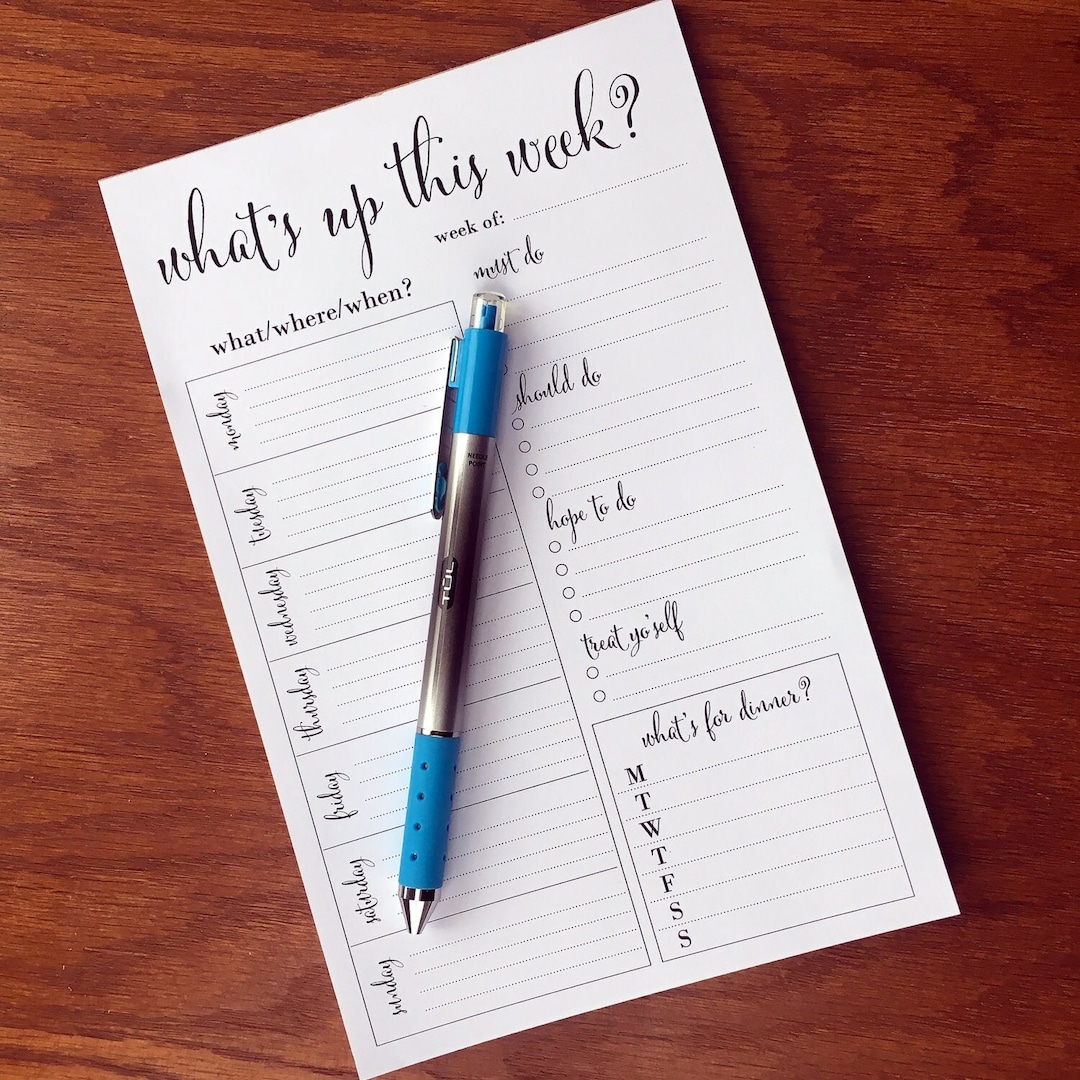 what's up this week?
week of:
what/where/when?
monday
tuesday
wednesday
thursday
friday
saturday
sunday
must do
should do
hope to do
treat yo'self
what's for dinner?
M
T
W
T
F
S
S
NEEDLE
POINT
TUL